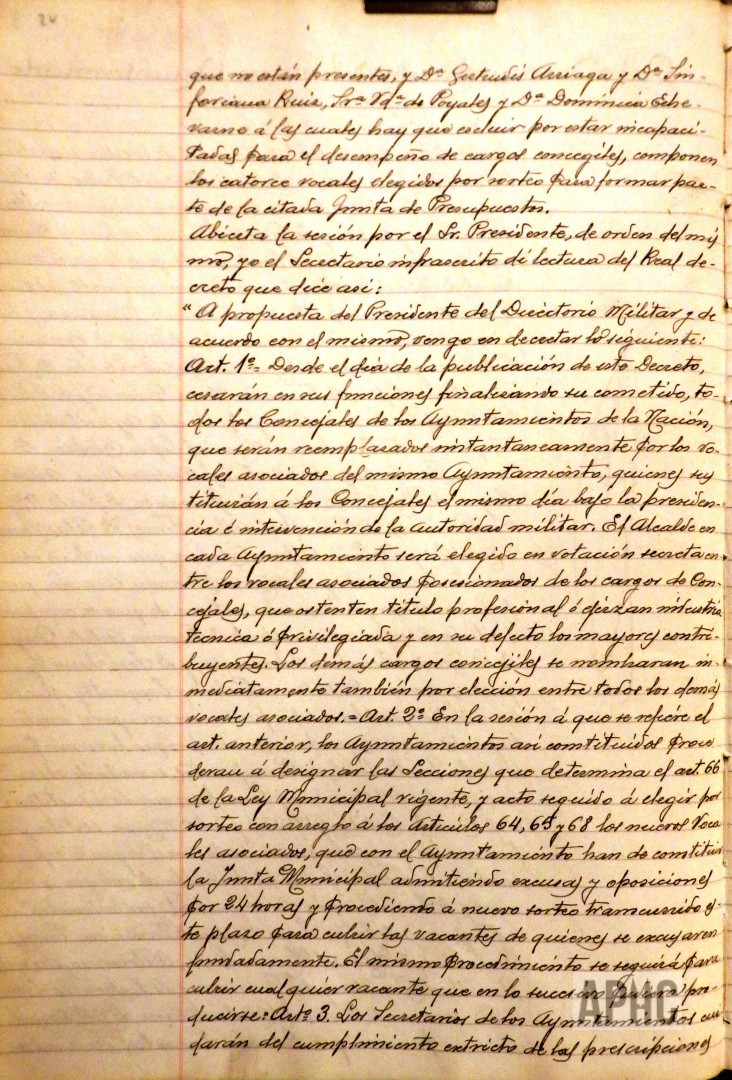 24
que no están presentes, y Dª Gertrudis Arriaga y Dª Sin-
foriana Ruiz, Srª Vdª de Poyales y Dª Dominica Eche-
varne á las cuales hay que escluir por estar incapaci-
tadas para el desempeño de cargos concegiles, componen
los catorce vocales elegidos por sorteo para formar par-
te de la citada Junta de Presupuestos.
Abierta la sesión por el Sr. Presidente, de orden del mis
mo, yo el Secretario infrascrito dí lectura del Real de-
creto que dice asi:
"A propuesta del Presidente del Directorio Militar y de
acuerdo con el mismo, vengo en decretar lo siguiente:
Art. 1º= Desde el día de la publicación de este Decreto,
cesarán en sus funciones finalizando su cometido, to-
dos los Concejales de los Ayuntamientos de la Nación,
que serán reemplazados instantaneamente por los vo-
cales asociados del mismo Ayuntamiento, quienes sus
tituirán á los Concejales el mismo día bajo la presiden-
cia é intervención de la autoridad militar. El Alcalde en
cada Ayuntamiento será elegido en votación secreta en
tre los vocales asociados posesionados de los cargos de Con-
cejales, que ostenten título profesional ó ejerzan industria
tecnica ó privilegiada y en su defecto los mayores contri-
buyentes. Los demás cargos concegiles se nombraran in-
mediatamente también por elección entre todos los demás
vocales asociados.= Art. 2º En la sesión á que se refiere el
art. anterior, los Ayuntamientos asi constituidos proce
deran á designar las Secciones que determina el art. 66
de la Ley Municipal vigente, y acto seguido á elegir por
sorteo con arreglo á los Articulos 64, 65 y 68 los nuevos Voca
les asociados, que con el Ayuntamiento han de constituir
la Junta Municipal admitiendo excusas y oposiciones
por 24 horas y procediendo á nuevo sorteo transcurrido es-
te plazo para cubrir las vacantes de quienes se excusaren
fundadamente. El mismo procedimiento se seguirá para
cubrir cualquier vacante que en lo sucesivo quiera pro-
ducirse= Artº 3. Los Secretarios de los Ayuntamientos cui
darán del cumplimiento extricto de las prescripciones
APHC